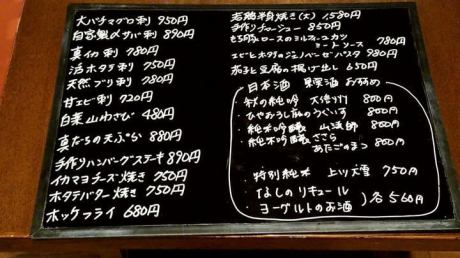 大バチマグロ刺 950円
自家製〆サバ刺 890円
真イカ刺 780円
活ホタテ刺 750円
天然ブリ刺 780円
甘エビ刺 720円
白菜山わさび 480円
真だちの天ぷら 880円
手作りハンバーグステーキ 890円
イカマヨチーズ焼き 750円
ホタテバター焼き 750円
ホッケフライ 680円
若鶏半身焼き(大) 1580円
手作りチャーシュー 850円
もち豚ロースのミルフィーユカツ
ミートソース 780円
エビとホタテのジェノバーゼパスタ 980円
茄子と豆腐の揚げ出し 650円
日本酒 果実酒 おすすめ
秋の純吟 大信州 800円
ひやおろし 鳳のうぐいす 800円
純米吟醸 山法師 800円
純米吟醸 ささら
あたごのまつ 800円
特別純米 上川大雪 750円
なしのリキュール
ヨーグルトのお酒 )各560円